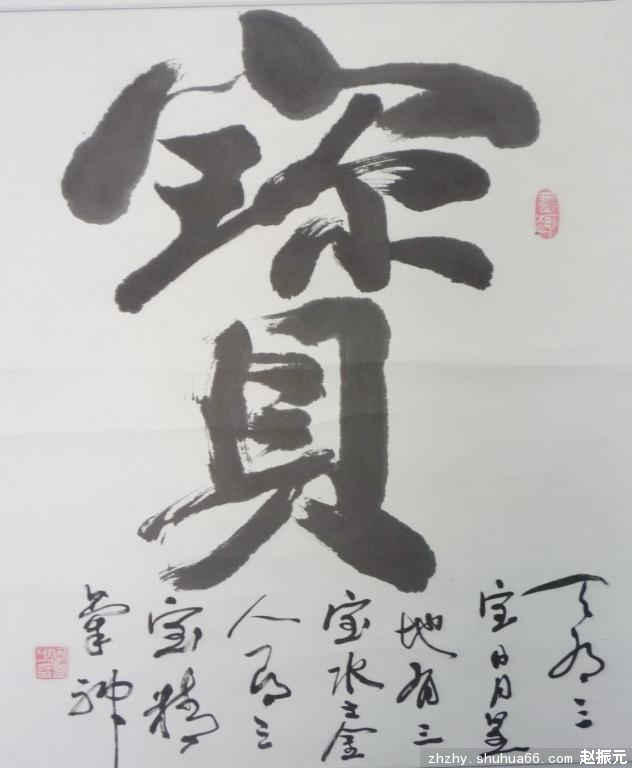 寳
天有三
宝日月星
地有三
宝水土金
人有三
宝精
氣神
zhzhy.shuhua66.com 赵振元